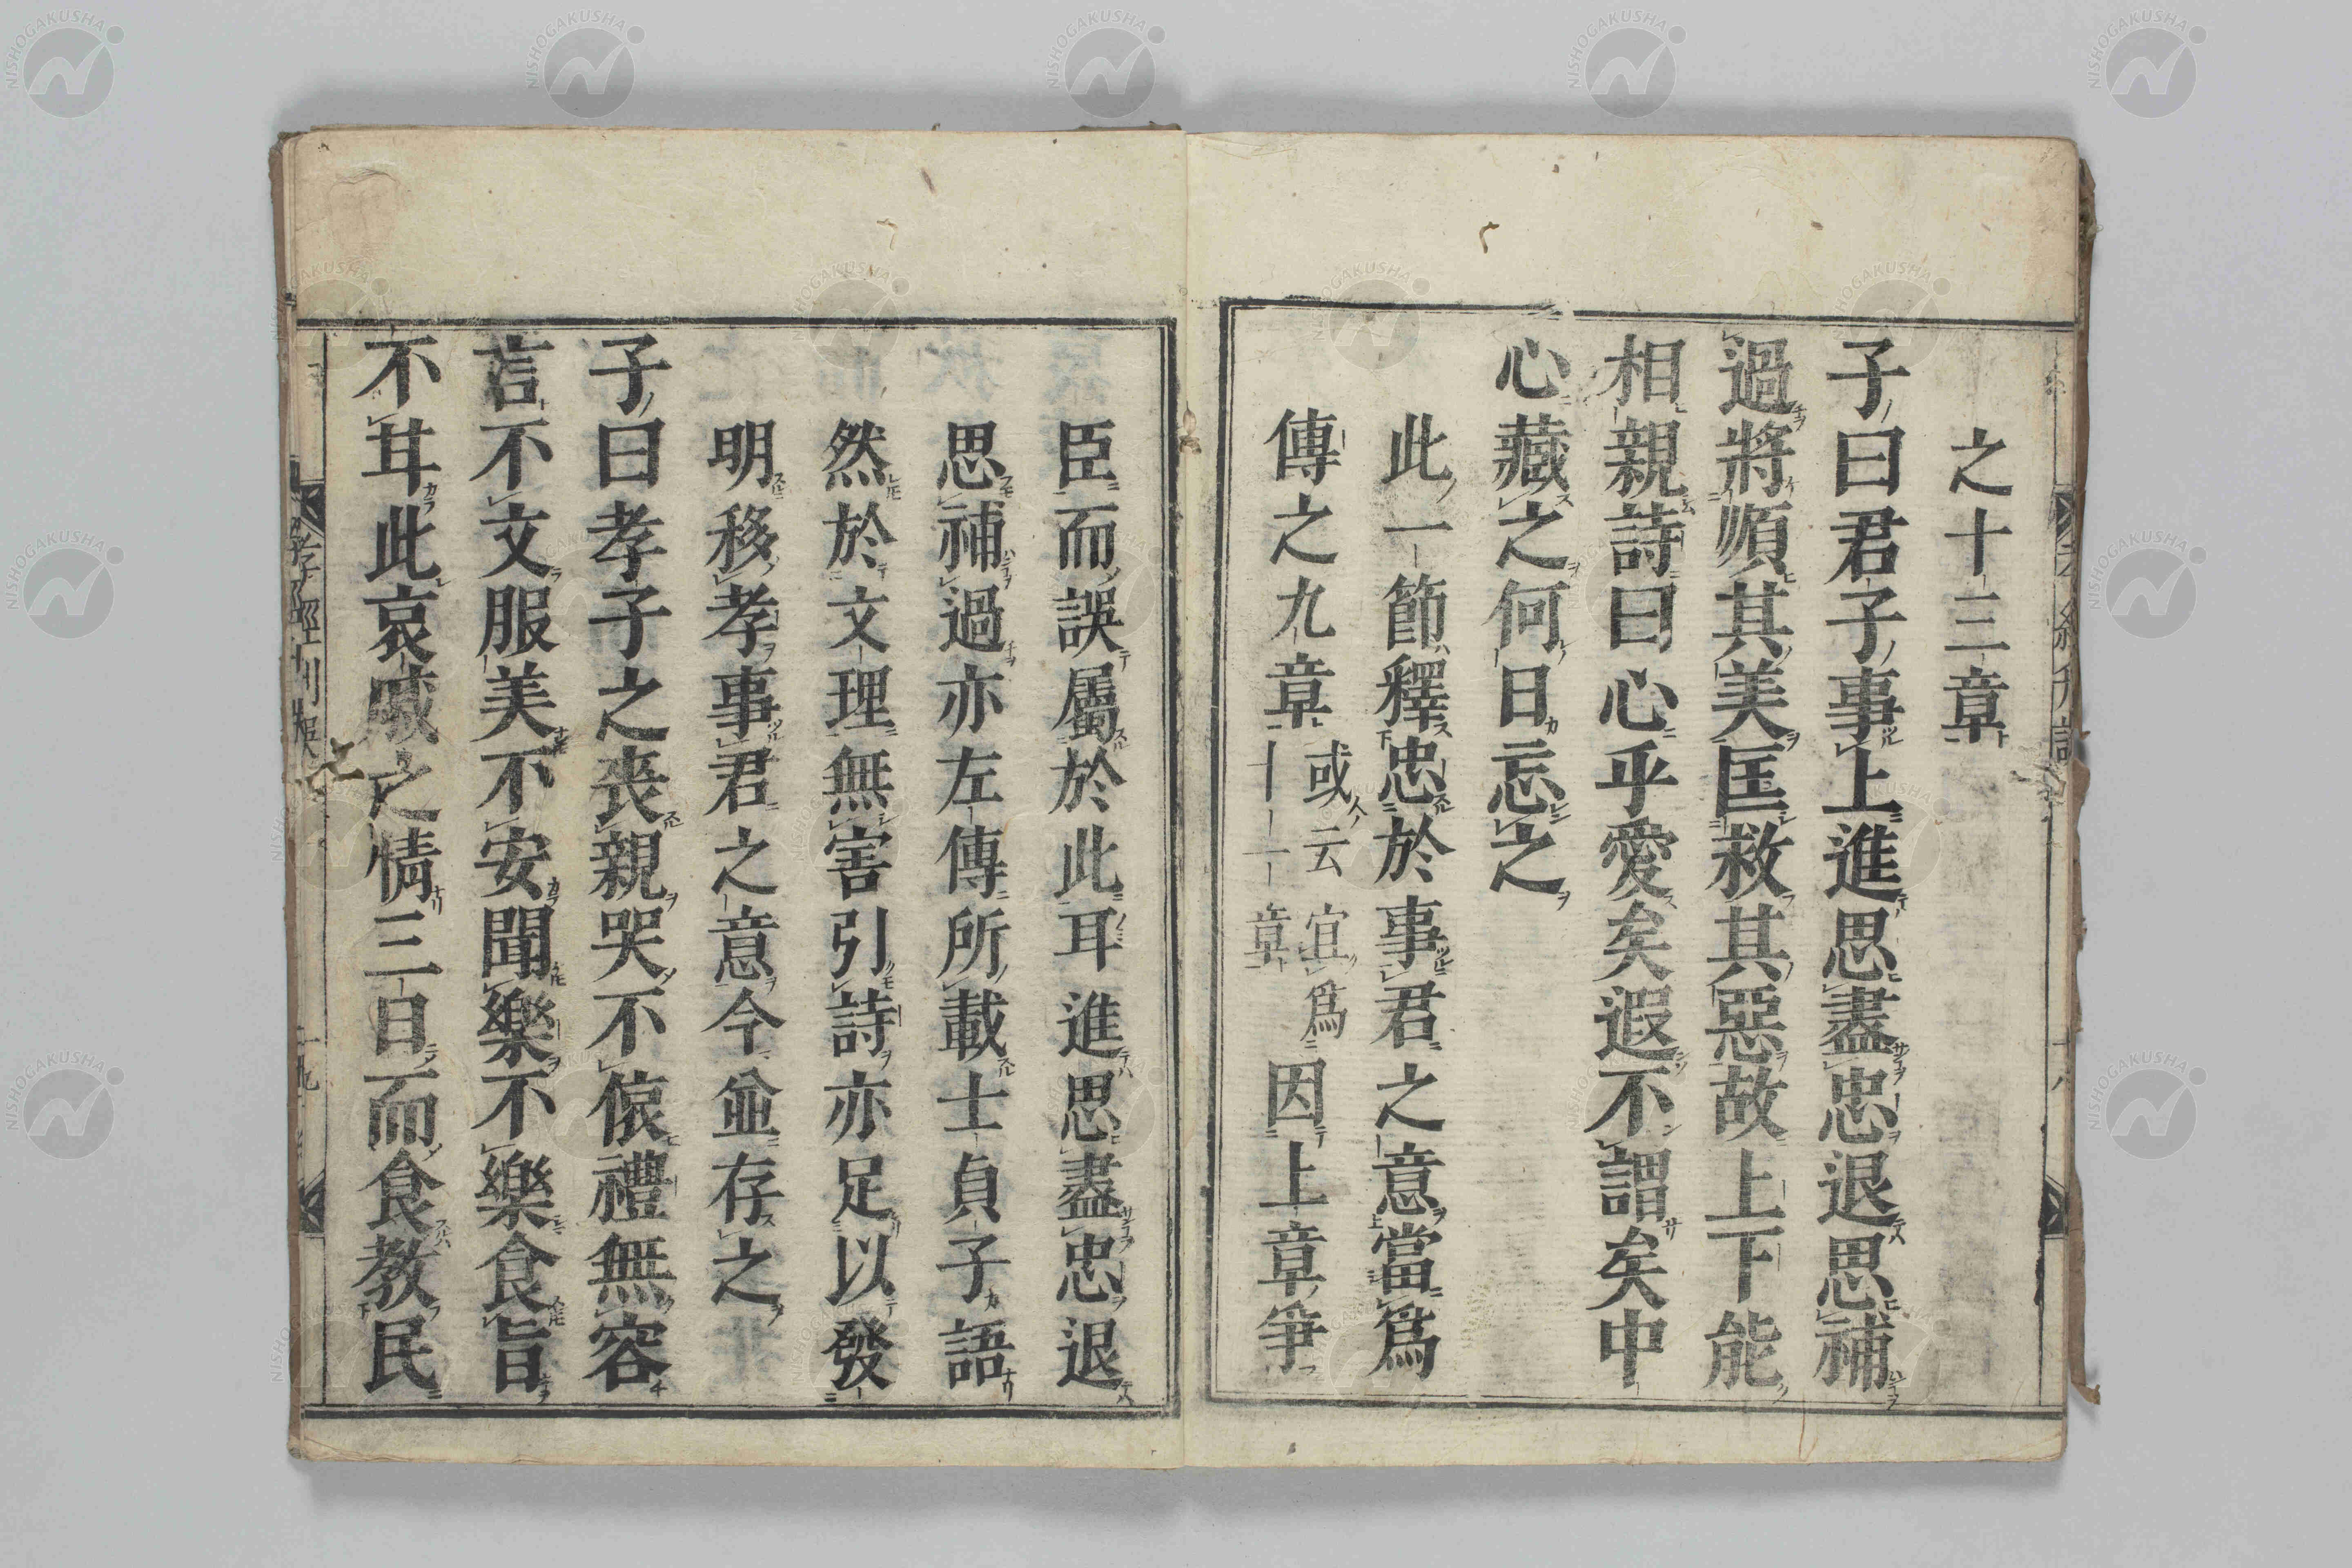 之十三章
子曰君子事上進思盡忠退思補
過將順其美匡救其惡故上下能
相親詩曰心乎愛矣遐不謂矣中
心藏之何日忘之
此一節釋忠於事君之意當爲
傳之九章或云宜爲十一章因上章爭
臣而誤屬於此耳進思盡忠退
思補過亦左傳所載士貞子語
然於文理無害引詩亦足以發
明移孝事君之意今並存之
子曰孝子之喪親哭不偯禮無容
言不文服美不安聞樂不樂食旨
不甘此哀戚之情三日而食教民
孝經刊誤
NISHOGAKUSHA